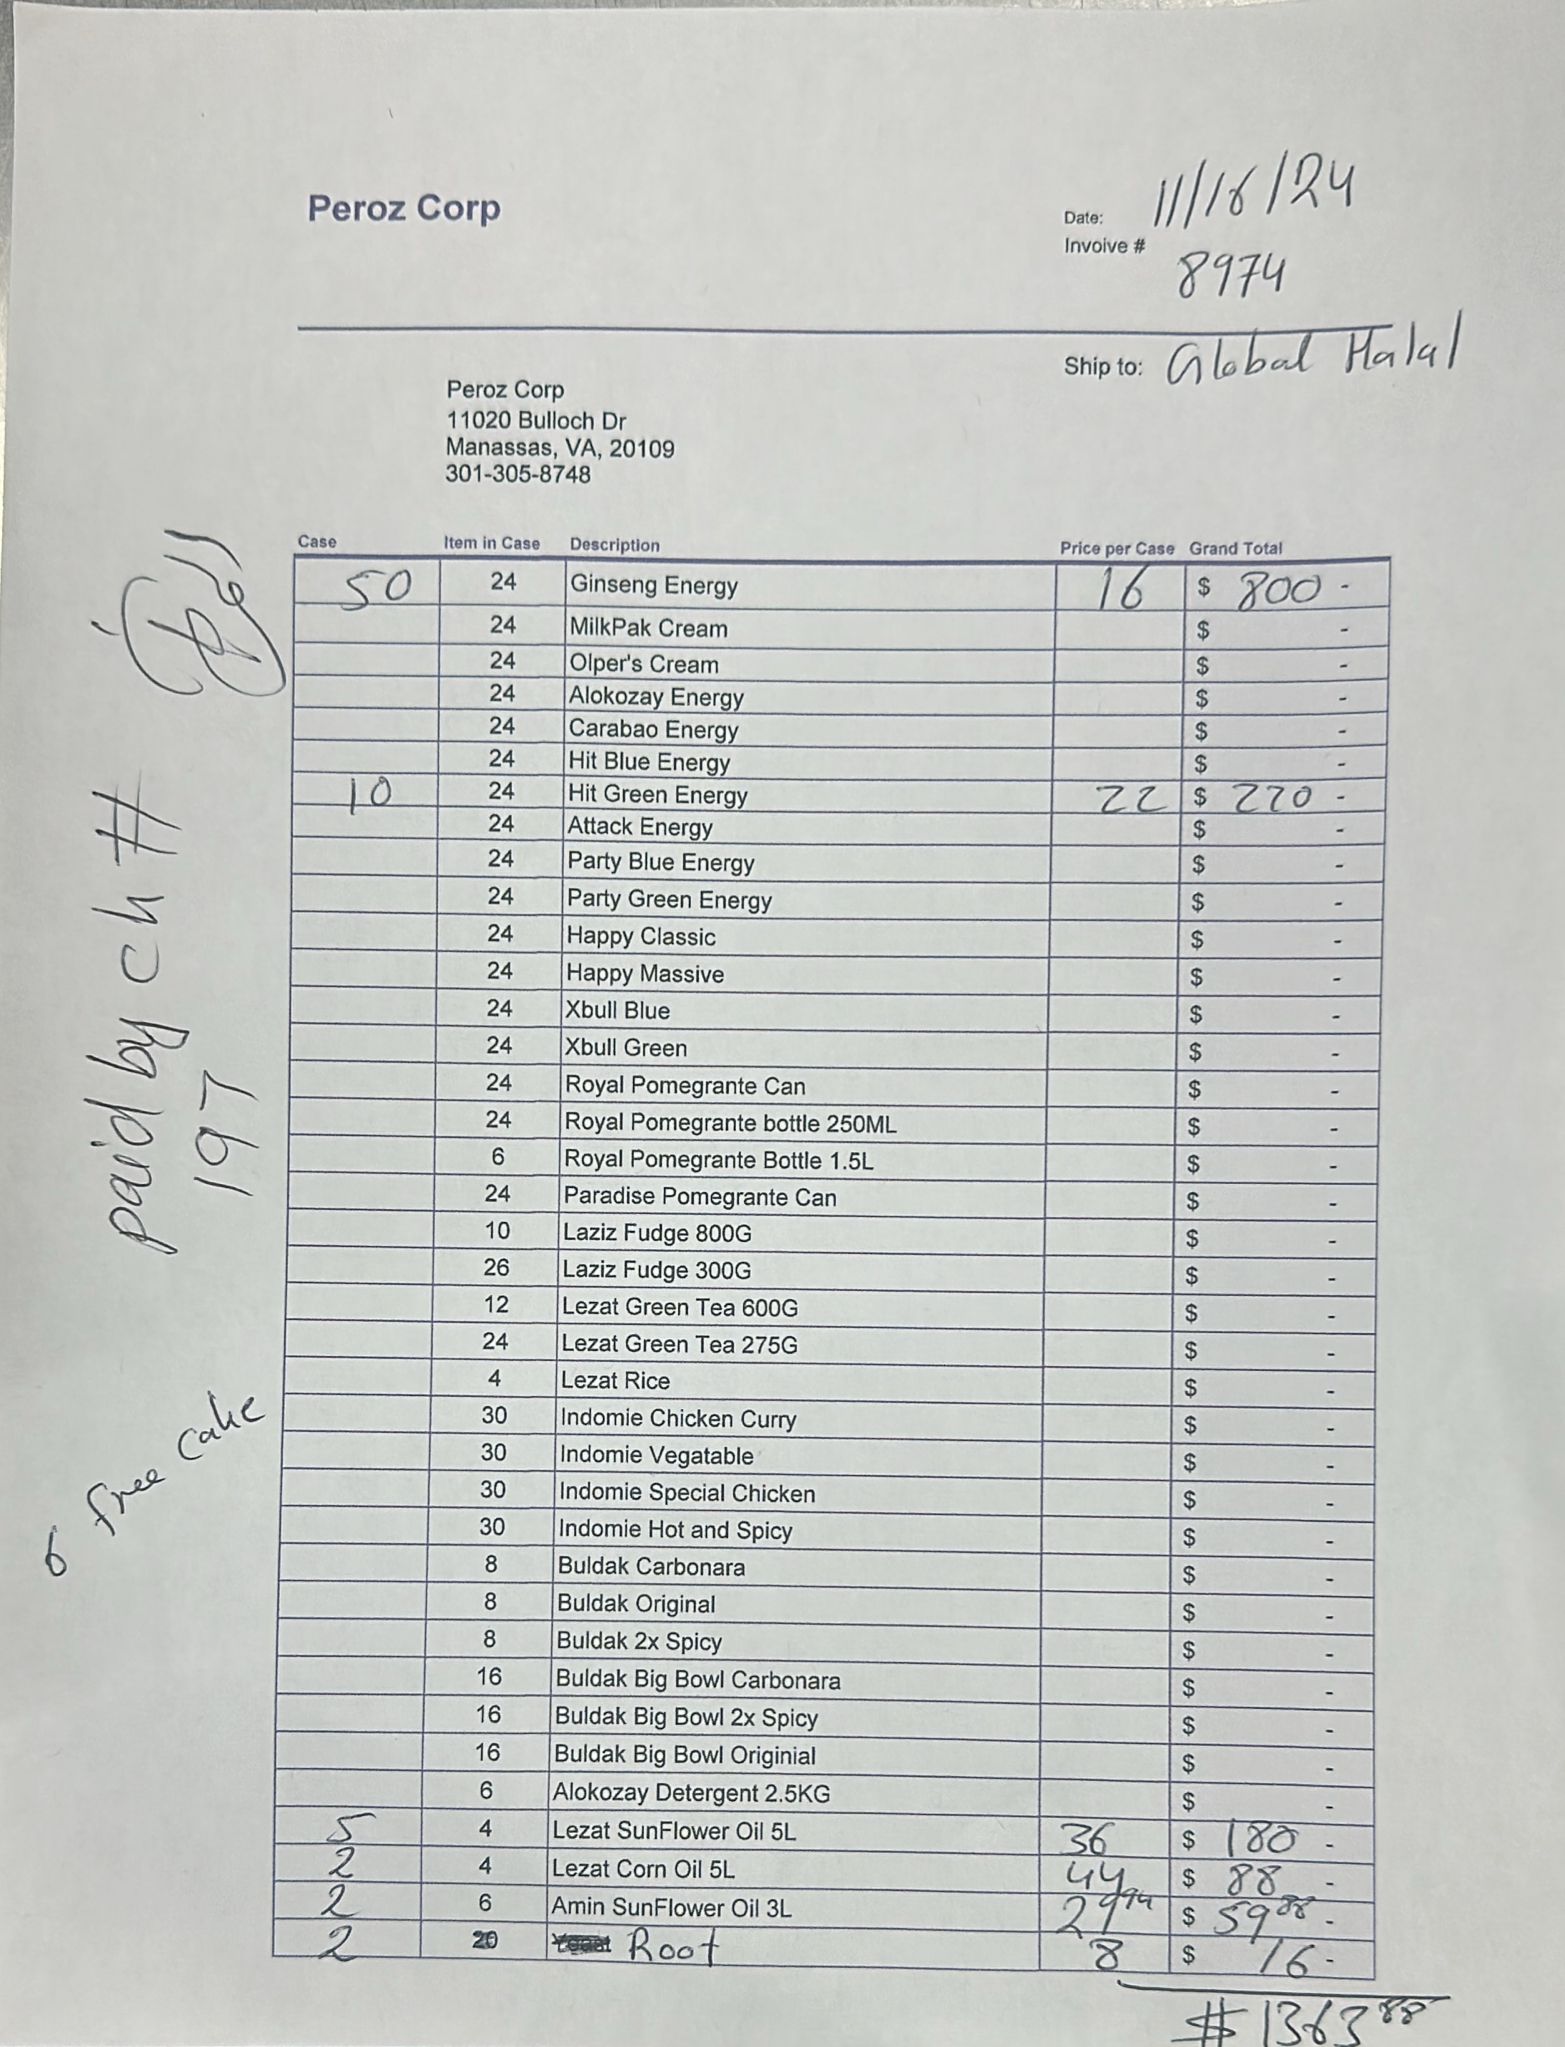 Peroz Corp
Date: 11/16/24
Invoive # 8974
Ship to: Global Halal
Peroz Corp
11020 Bulloch Dr
Manassas, VA, 20109
301-305-8748
Case Item in Case Description Price per Case Grand Total
50 24 Ginseng Energy 16 $ 800 -
24 MilkPak Cream $ -
24 Olper's Cream $ -
24 Alokozay Energy $ -
24 Carabao Energy $ -
24 Hit Blue Energy $ -
10 24 Hit Green Energy 22 $ 220 -
24 Attack Energy $ -
24 Party Blue Energy $ -
24 Party Green Energy $ -
24 Happy Classic $ -
24 Happy Massive $ -
24 Xbull Blue $ -
24 Xbull Green $ -
24 Royal Pomegrante Can $ -
24 Royal Pomegrante bottle 250ML $ -
6 Royal Pomegrante Bottle 1.5L $ -
24 Paradise Pomegrante Can $ -
10 Laziz Fudge 800G $ -
26 Laziz Fudge 300G $ -
12 Lezat Green Tea 600G $ -
24 Lezat Green Tea 275G $ -
4 Lezat Rice $ -
30 Indomie Chicken Curry $ -
30 Indomie Vegatable $ -
30 Indomie Special Chicken $ -
30 Indomie Hot and Spicy $ -
8 Buldak Carbonara $ -
8 Buldak Original $ -
8 Buldak 2x Spicy $ -
16 Buldak Big Bowl Carbonara $ -
16 Buldak Big Bowl 2x Spicy $ -
16 Buldak Big Bowl Originial $ -
6 Alokozay Detergent 2.5KG $ -
5 4 Lezat SunFlower Oil 5L 36 $ 180 -
2 4 Lezat Corn Oil 5L 44 $ 88 -
2 6 Amin SunFlower Oil 3L 29 94 $ 59 88 -
2 20 Root 8 $ 16 -
$ 1363 88
paid by ch #
197
6 free cake